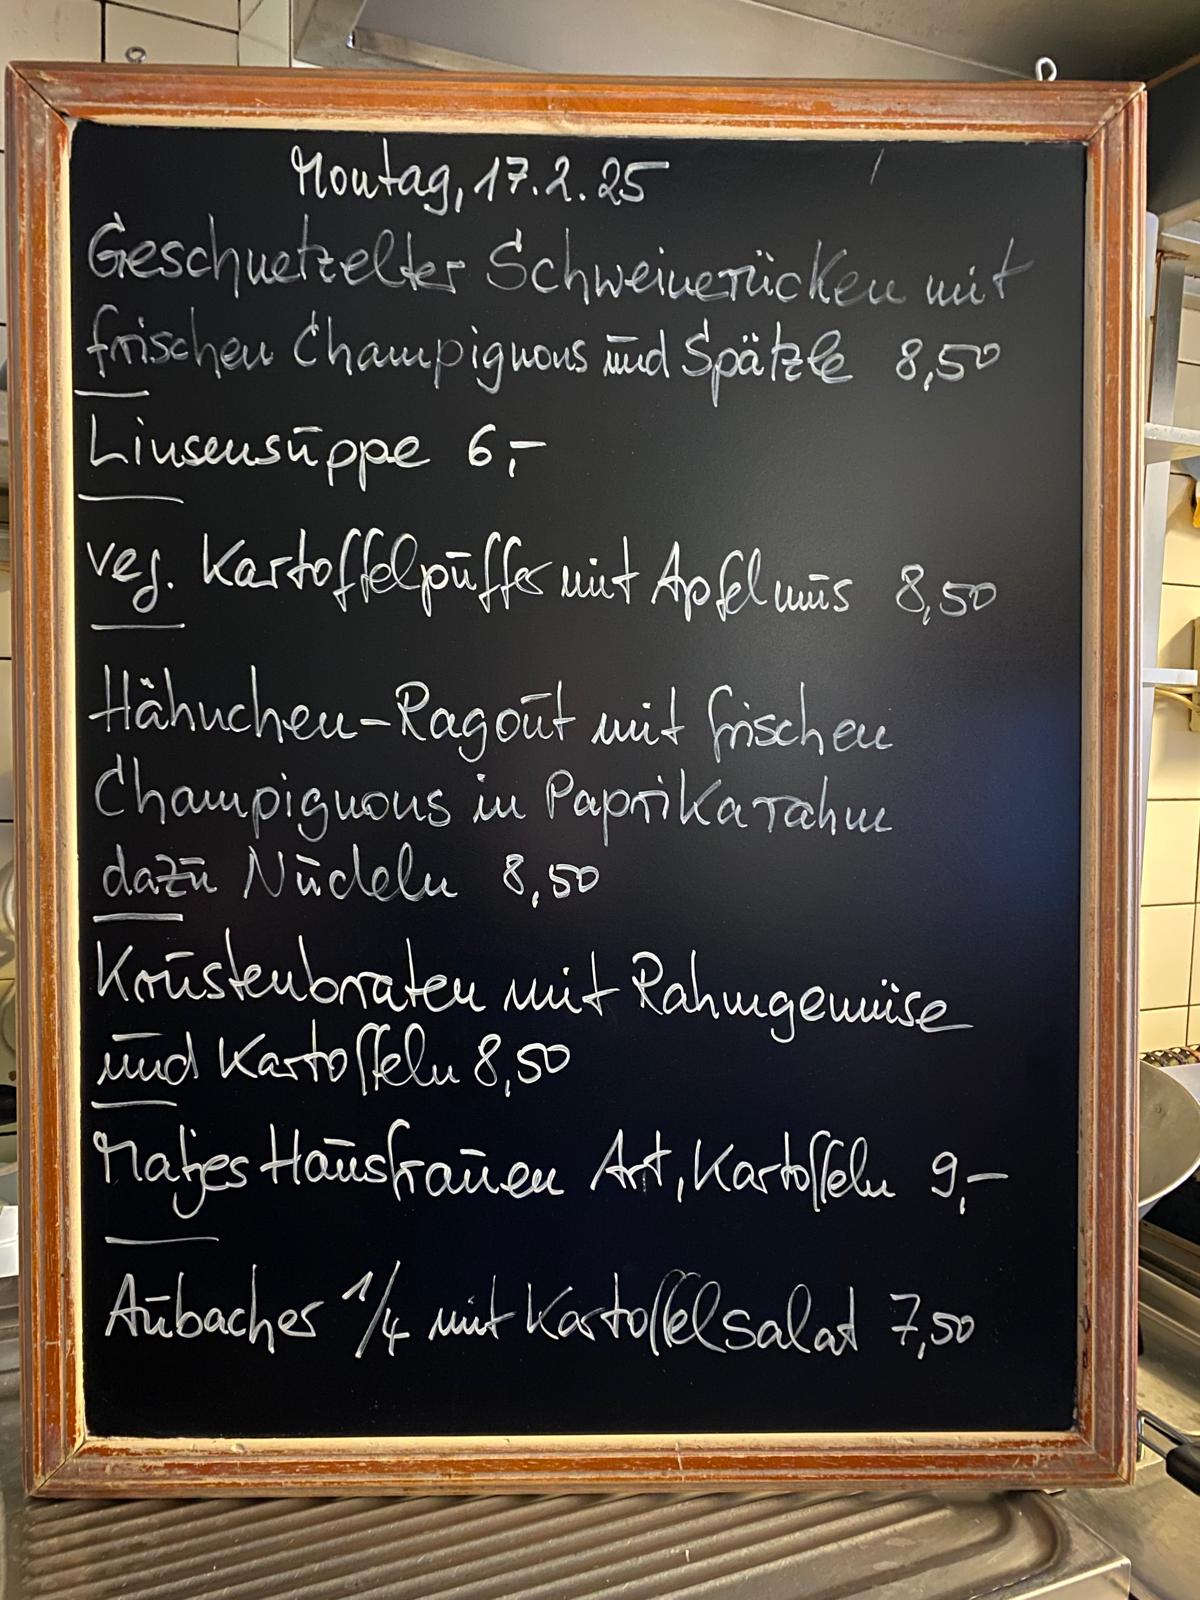 Montag, 17.2.25
Geschnetzelter Schweinerücken mit
frischen Champignons und Spätzle 8,50
Linsensuppe 6,-
veg. Kartoffelpuffer mit Apfelmus 8,50
Hähnchen-Ragout mit frischen
Champignons in Paprikarahm
dazu Nudeln 8,50
Krustenbraten mit Rahmgemüse
und Kartoffeln 8,50
Matjes Hausfrauen Art, Kartoffeln 9,-
Aubacher 1/4 mit Kartoffelsalat 7,50